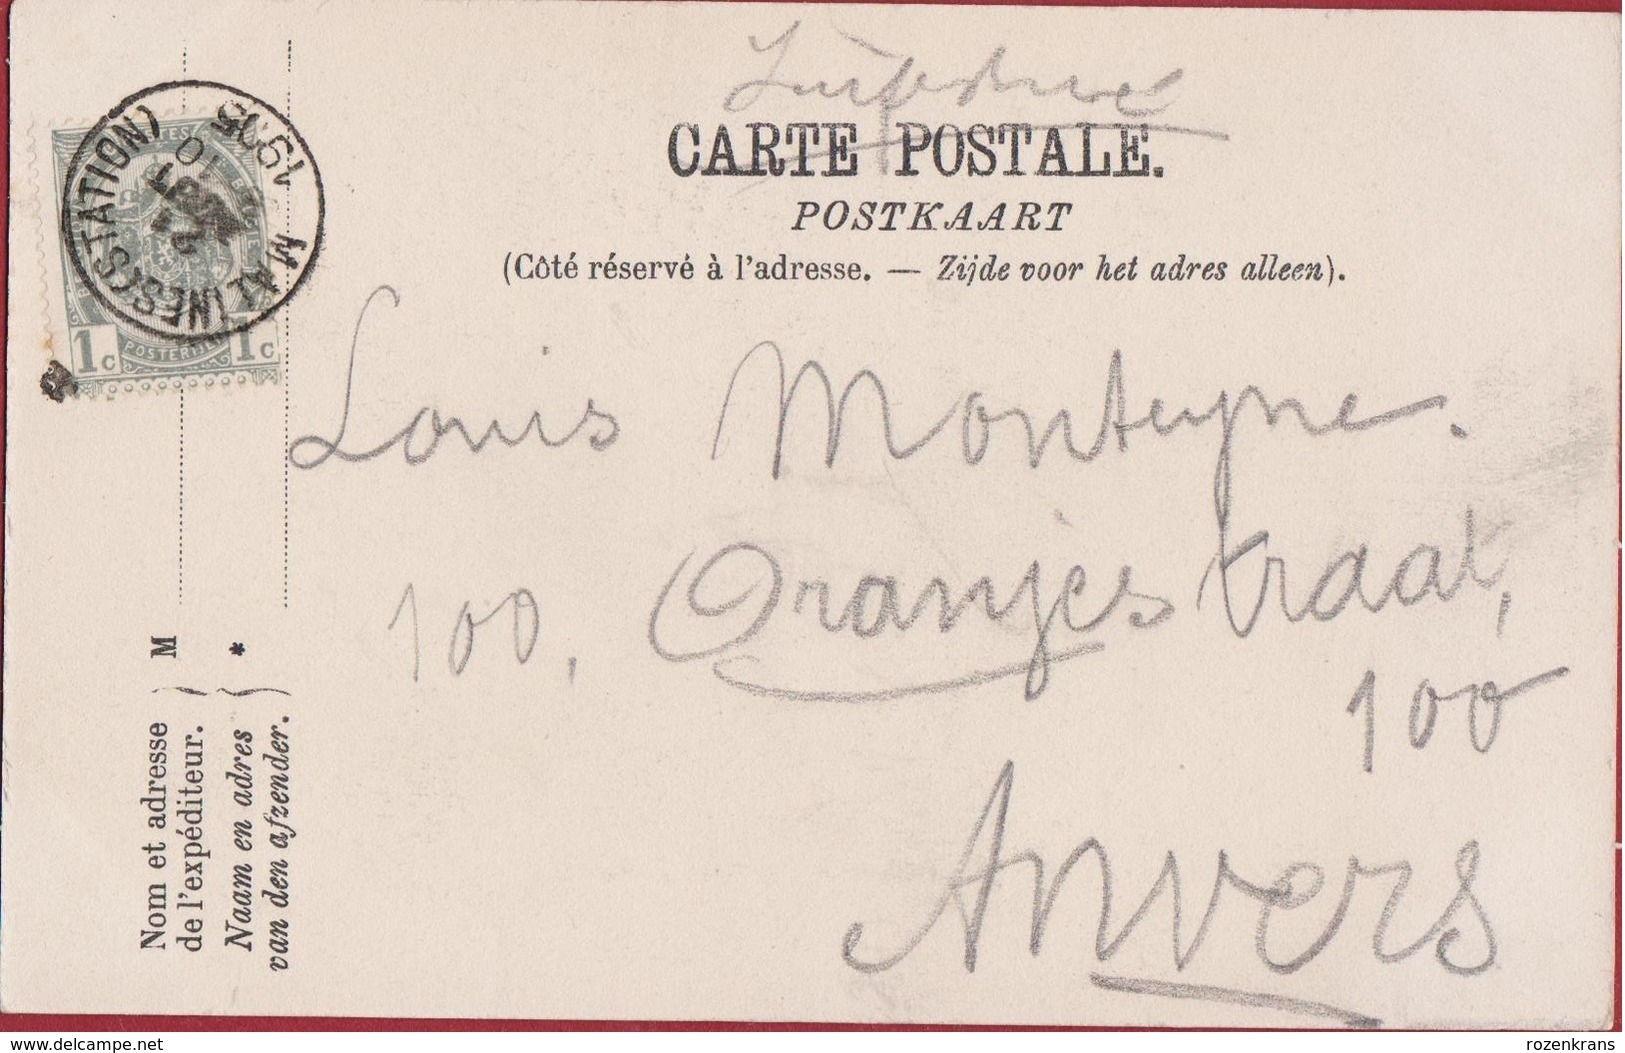 CARTE POSTALE.
POSTKAART
(Côté réservé à l'adresse. — Zijde voor het adres alleen).
MALINES (STATION)
10
1905
1c POSTERIJEN 1c
Louis Monteyne.
100, Oranjestraat,
100
Anvers
M
*
Nom et adresse
de l'expéditeur.
Naam en adres
van den afzender.
delcampe.net
rozenkrans